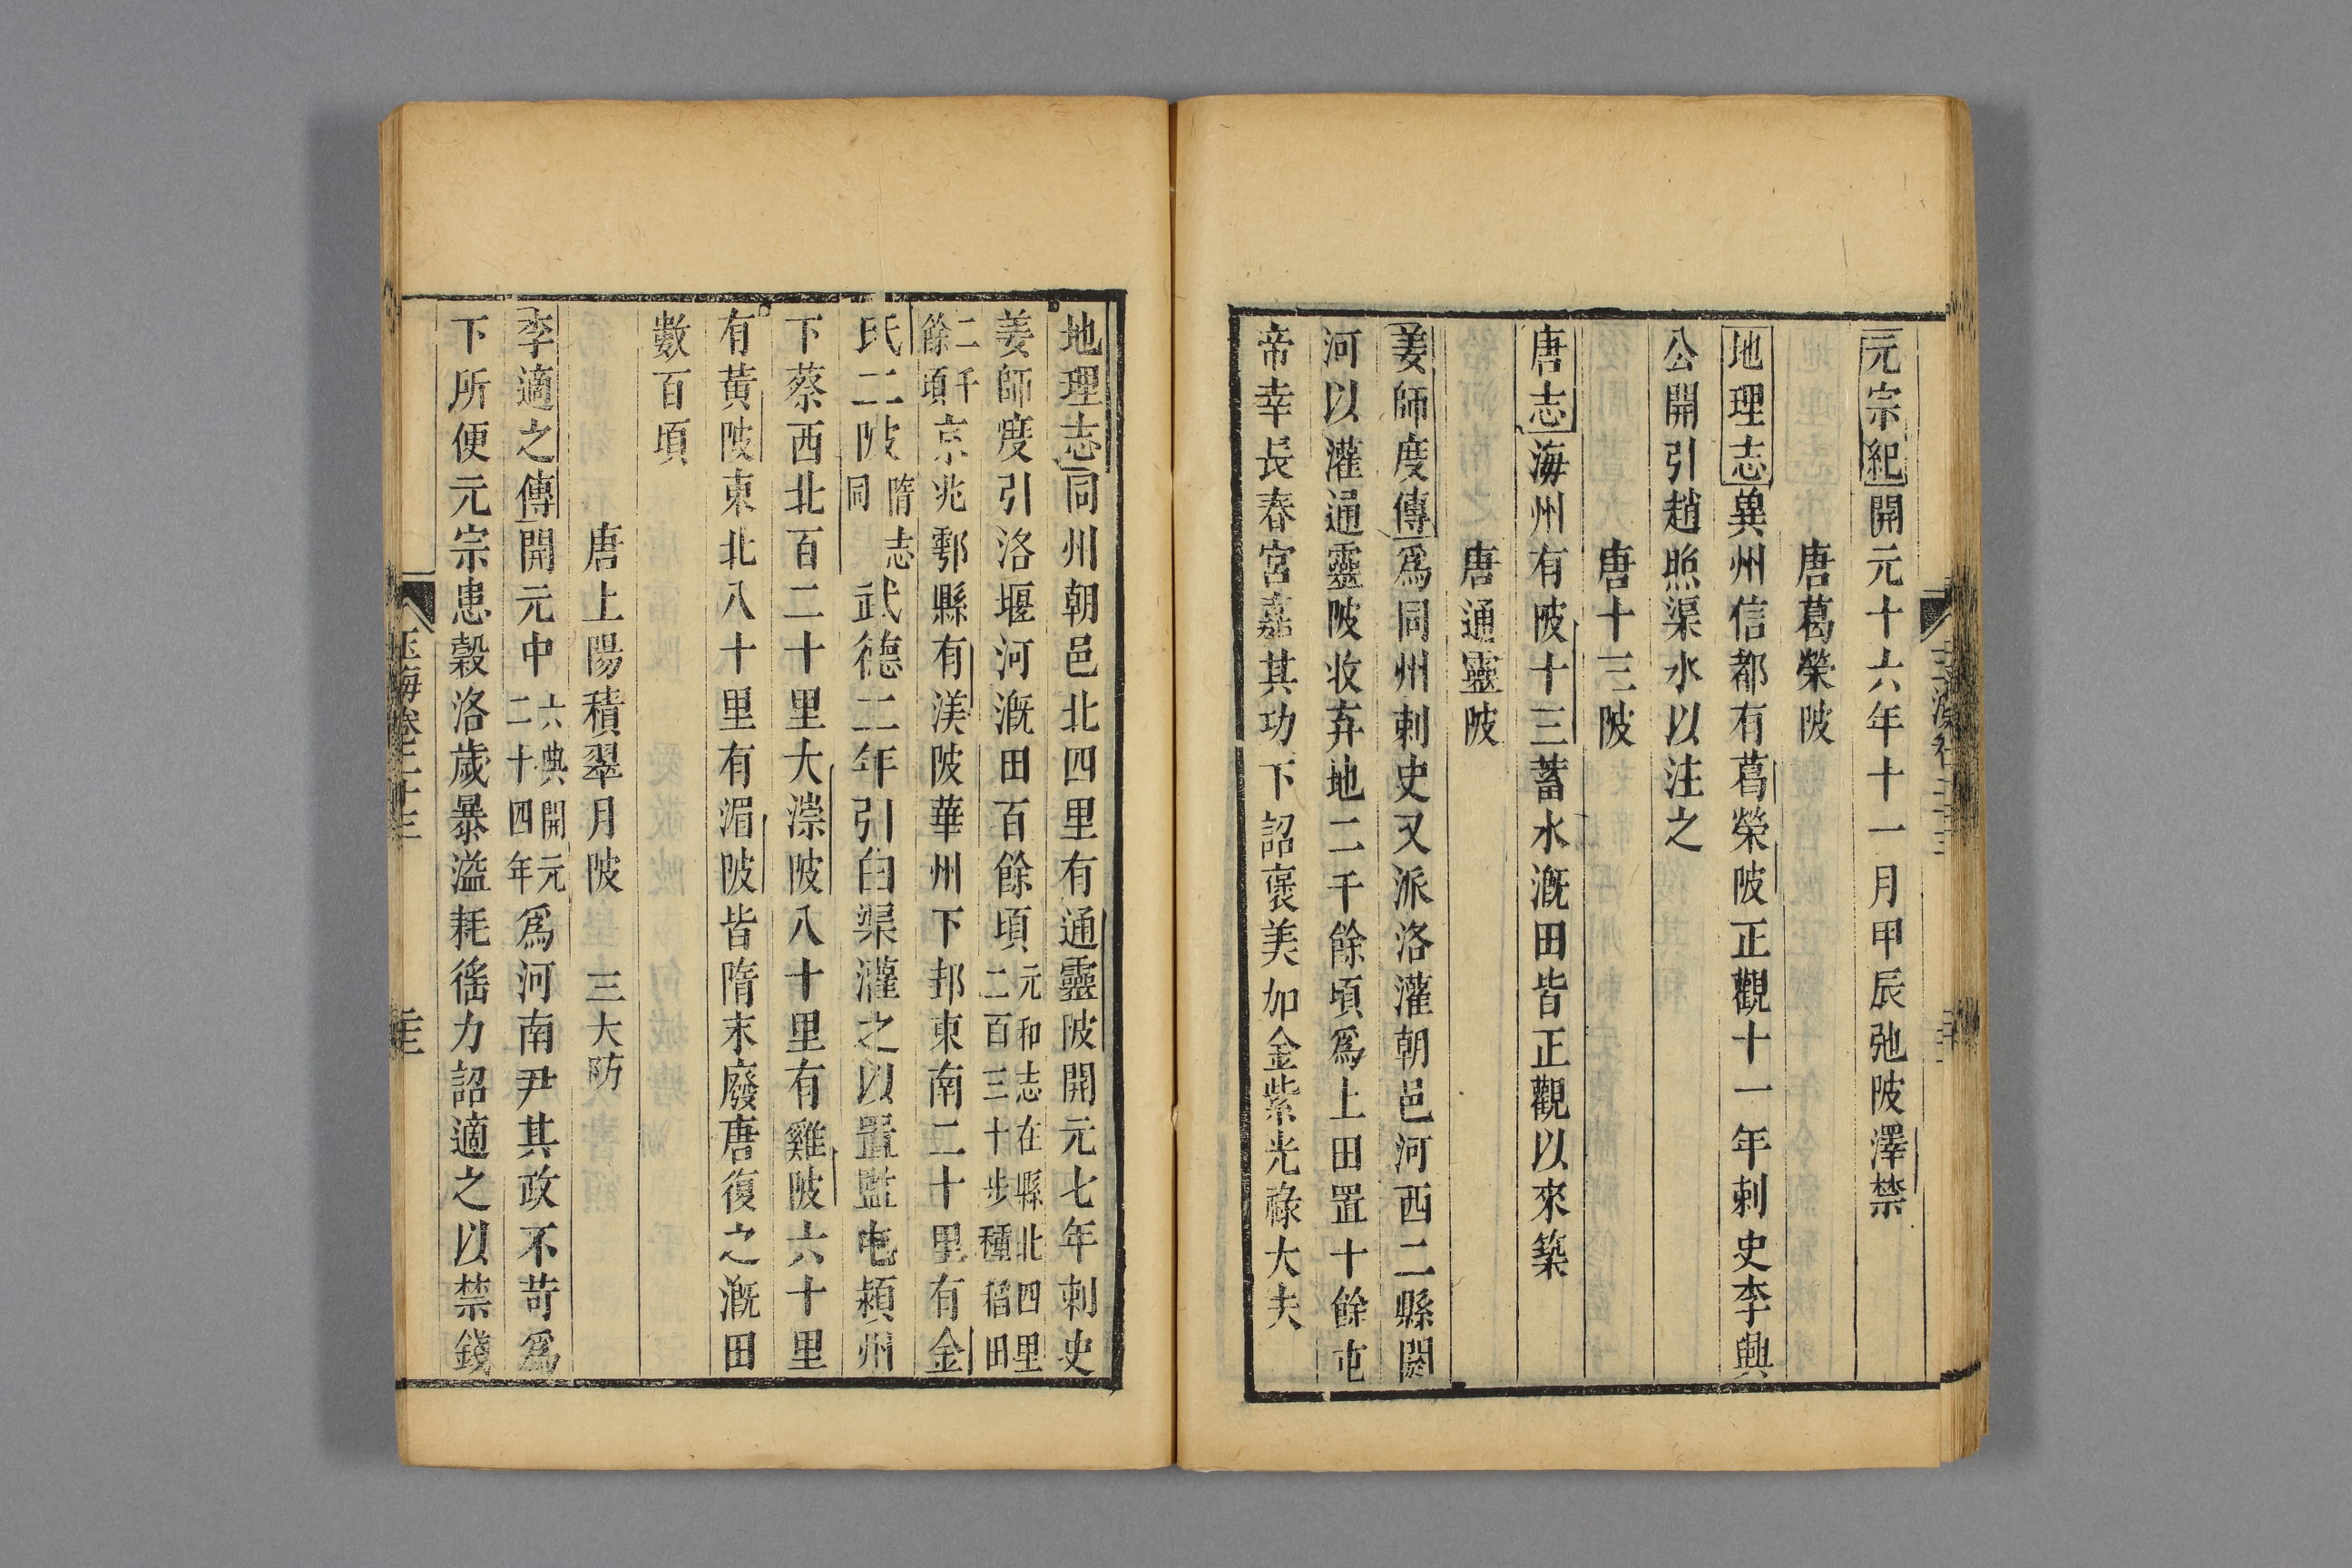 元宗紀開元十六年十一月甲辰弛陂澤禁
唐葛榮陂
地理志兾州信都有葛榮陂正觀十一年刺史李興
公開引趙照渠水以注之
唐十三陂
唐志海州有陂十三蓄水漑田皆正觀以來築
唐通靈陂
姜師度傳爲同州刺史又派洛灌朝邑河西二縣閼
河以灌通靈陂收弃地二千餘頃爲上田置十餘屯
帝幸長春宮嘉其功下詔褒美加金紫光祿大夫
地理志同州朝邑北四里有通靈陂開元七年刺史
姜師度引洛堰河漑田百餘頃元和志在縣北四里二百三十步種稻田
二千餘頃京兆鄠縣有渼陂華州下邽東南二十里有金
氏二陂隋志同武德二年引白渠灌之以置監屯潁州
下蔡西北百二十里大漴陂八十里有雞陂六十里
有黃陂東北八十里有湄陂皆隋末廢唐復之漑田
數百頃
唐上陽積翠月陂 三大防
李適之傳開元中六典開元二十四年爲河南尹其政不苛爲
下所便元宗患穀洛歲暴溢耗徭力詔適之以禁錢
玉海卷二十三